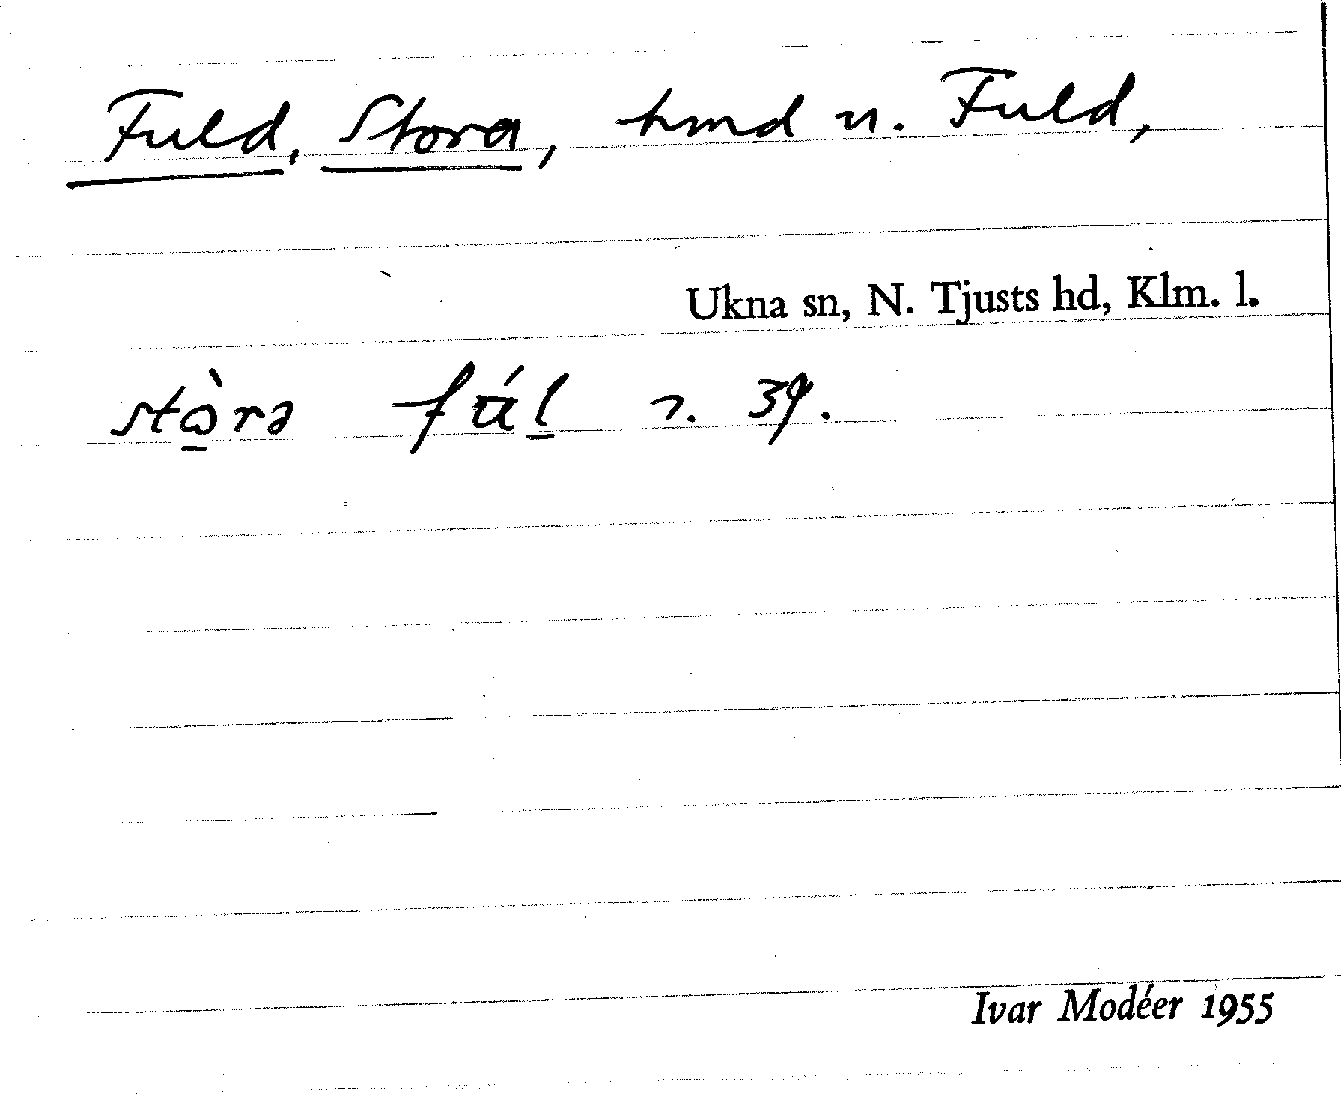 Fuld, Stora, hmd u. Fuld,
Ukna sn, N. Tjusts hd, Klm. l.
stò̠rə fʉ́l̠ 39.
Ivar Modéer 1955